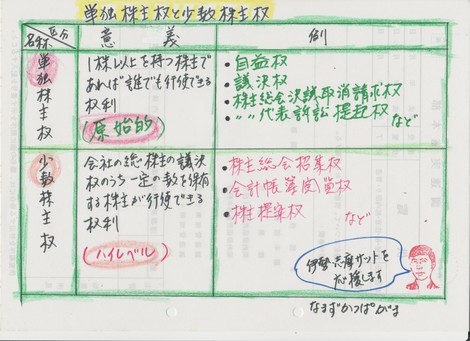 単独株主権と少数株主権
区分
名称
意義
例
単独株主権
1株以上を持つ株主で
あれば誰でも行使できる
権利
(原始的)
・自益権
・議決権
・株主総会決議取消請求権
・〃〃代表訴訟提起権
など
少数株主権
会社の総株主の議決
権のうち一定の数を保有
する株主が行使できる
権利
(ハイレベル)
・株主総会招集権
・会計帳簿閲覧権
・株主提案権
など
伊勢志摩サミットを
応援します
なまずかつぱがま